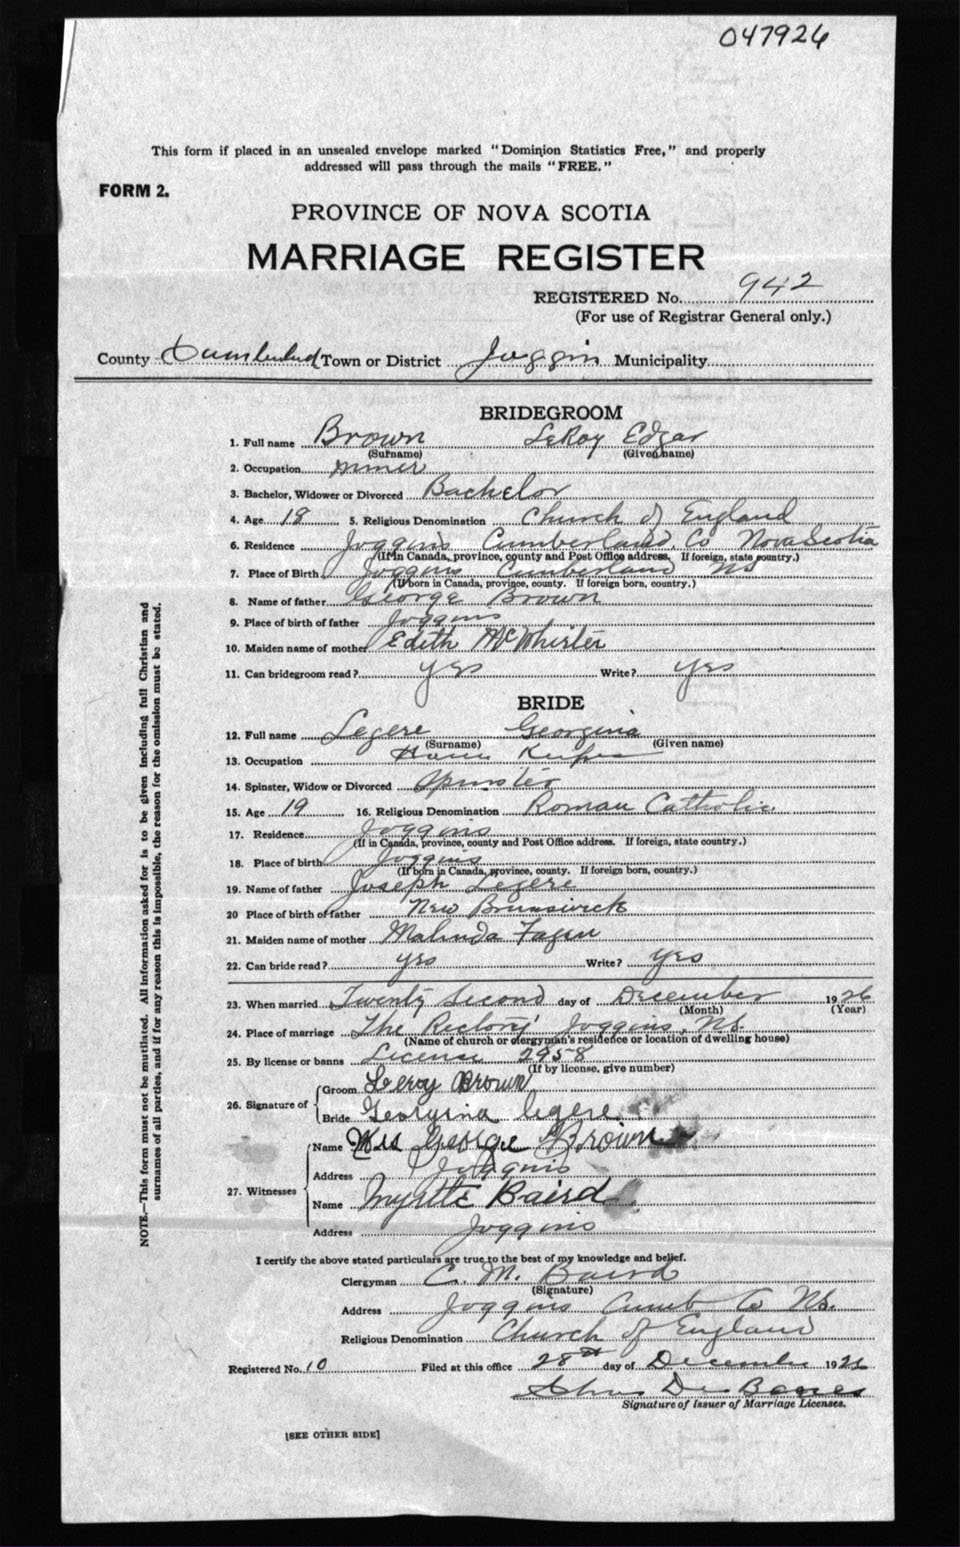 047926
This form if placed in an unsealed envelope marked "Dominion Statistics Free," and properly
addressed will pass through the mails "FREE."
FORM 2.
PROVINCE OF NOVA SCOTIA
MARRIAGE REGISTER
REGISTERED No. 942
(For use of Registrar General only.)
County Cumberland Town or District Joggins Municipality
BRIDEGROOM
1. Full name Brown LeRoy Edgar
(Surname) (Given name)
2. Occupation miner
3. Bachelor, Widower or Divorced Bachelor
4. Age 18 5. Religious Denomination Church of England
6. Residence Joggins Cumberland Co Nova Scotia
(If in Canada, province, county and Post Office address. If foreign, state country.)
7. Place of Birth Joggins Cumberland NS
(If born in Canada, province, county. If foreign born, country.)
8. Name of father George Brown
9. Place of birth of father Joggins
10. Maiden name of mother Edith McWhirter
11. Can bridegroom read? yes Write? yes
BRIDE
12. Full name Legere Georgina
(Surname) (Given name)
13. Occupation House Keeper
14. Spinster, Widow or Divorced Spinster
15. Age 19 16. Religious Denomination Roman Catholic
17. Residence Joggins
(If in Canada, province, county and Post Office address. If foreign, state country.)
18. Place of birth Joggins
(If born in Canada, province, county. If foreign born, country.)
19. Name of father Joseph Legere
20 Place of birth of father New Brunswick
21. Maiden name of mother Malinda
22. Can bride read? yes Write? yes
23. When married Twenty Second day of December 1926
(Month) (Year)
24. Place of marriage The Rectory Joggins, NS
(Name of church or clergyman's residence or location of dwelling house)
25. By license or banns License 2958
(If by license, give number)
26. Signature of
Groom Leroy Brown
Bride Georgina legere
27. Witnesses
Name Mrs George Brown
Address Joggins
Name Myrtle Baird
Address Joggins
I certify the above stated particulars are true to the best of my knowledge and belief.
Clergyman C. M. Baird
(Signature)
Address Joggins Cumb Co NS.
Religious Denomination Church of England
Registered No. 10 Filed at this office 28th day of December 1926
Signature of Issuer of Marriage Licenses.
[SEE OTHER SIDE]
NOTE.—This form must not be mutilated. All information asked for is to be given including full Christian and
surnames of all parties, and if for any reason this is impossible, the reason for the omission must be stated.